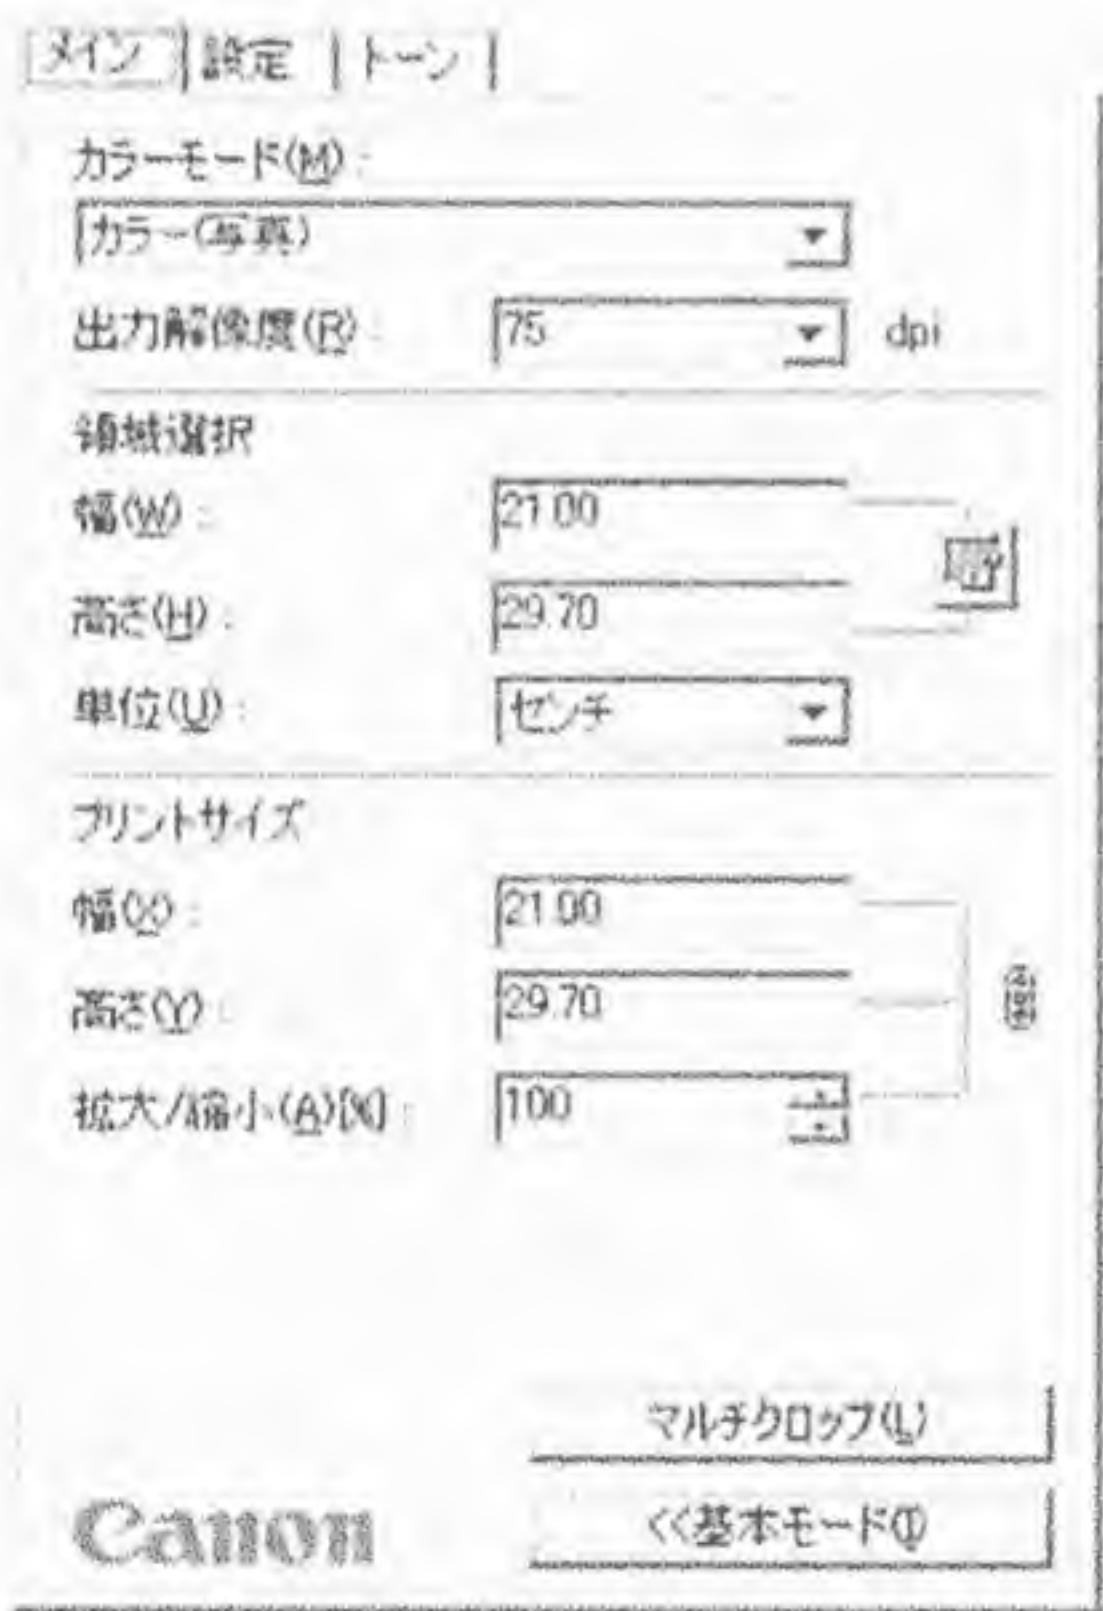 メイン 設定 トーン
カラーモード(M):
カラー(写真)
出力解像度(R): 75 dpi
領域選択
幅(W): 21.00
高さ(H): 29.70
単位(U): センチ
プリントサイズ
幅(X): 21.00
高さ(Y): 29.70
拡大/縮小(A)[%]: 100
マルチクロップ(L)
Canon <<基本モード(I)